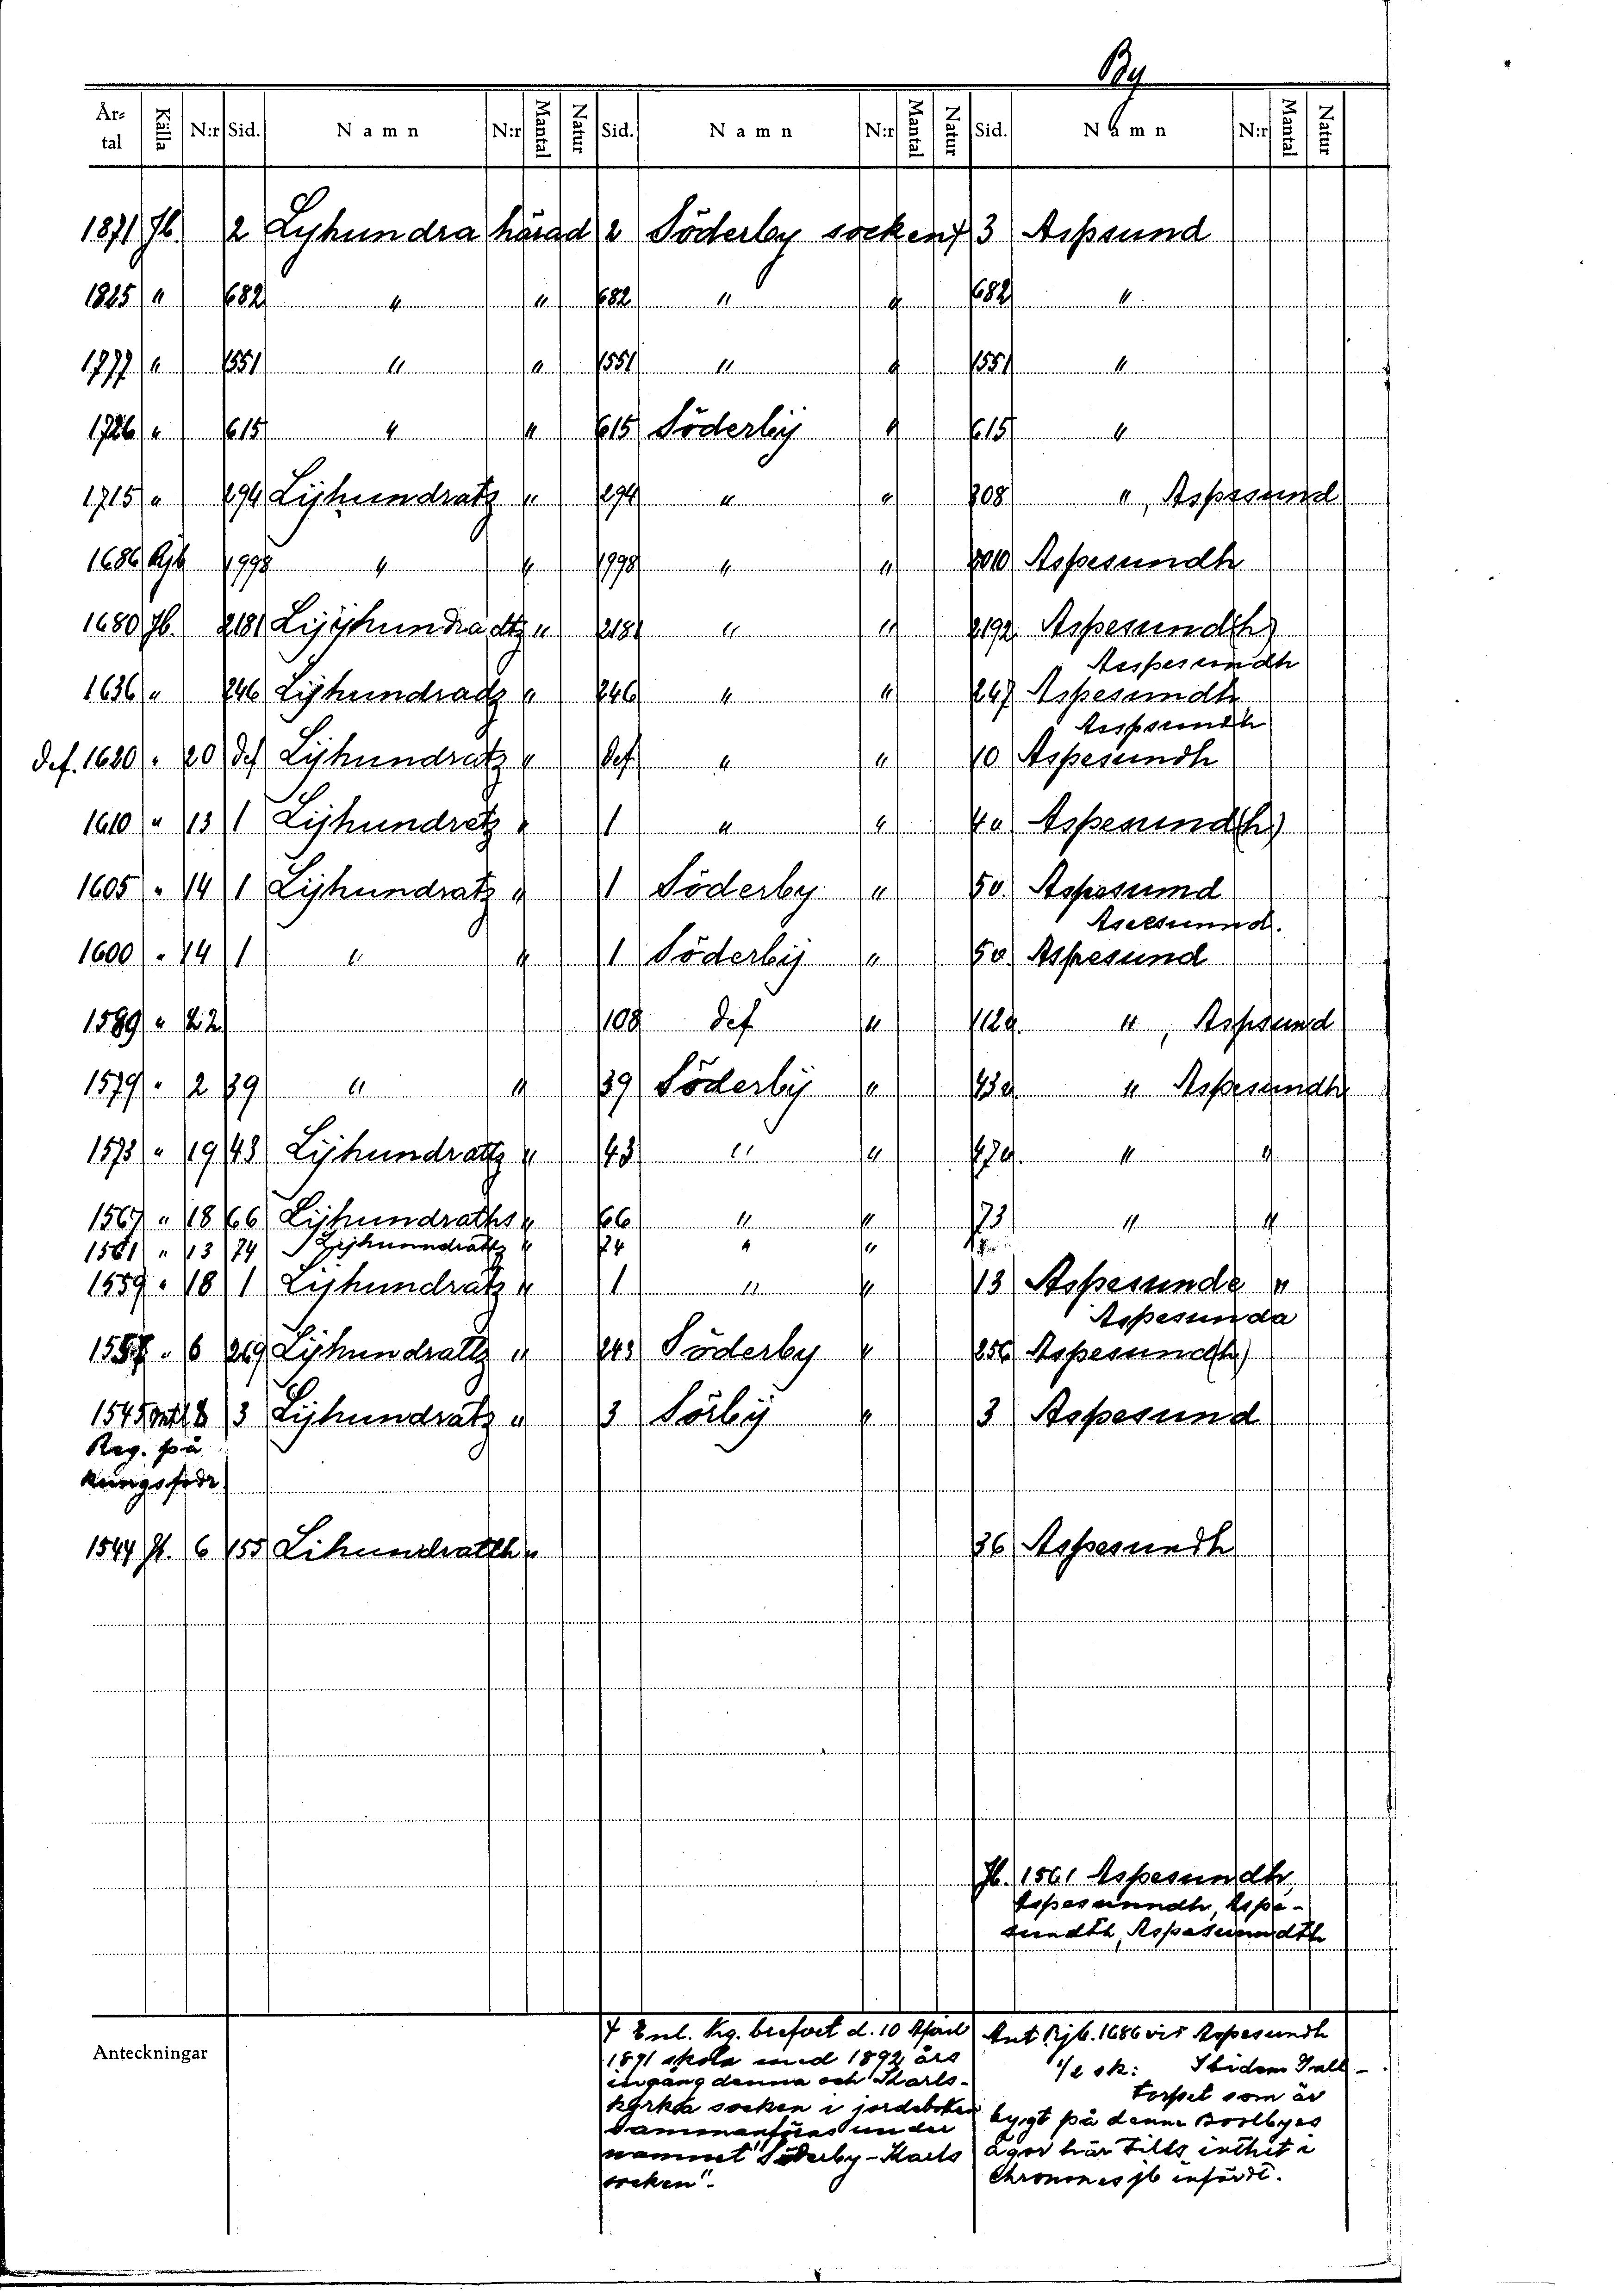 By
År-tal Källa N:r Sid. Namn N:r Mantal Natur Sid. Namn N:r Mantal Natur Sid. Namn N:r Mantal Natur
1871 Jb. 2 Lyhundra härad 2 Söderby socken † 3 Aspsund
1825 " 682 " " 682 " " 682 "
1777 " 1551 " " 1551 " " 1551 "
1726 " 615 " " 615 Söderbÿ " 615 "
1715 " 294 Lijhundratz " 294 " " 308 ", Aspesund
1686 Rjb 1998 " " 1998 " " 2010 Aspesundh
1680 Jb. 2181 Lijÿhundradtz " 2181 " " 2192 Aspesund(h)
Aespesundh
1636 " 246 Lijhundradz " 246 " " 247 Aspesundh
Aespsundh
def. 1620 " 20 def Lijhundratz " def " " 10 Aspesundh
1610 " 13 1 Lijhundretz " 1 " " 4a Aspesund(h)
1605 " 14 1 Lijhundratz " 1 Söderby " 5v. Aspesund
Aseesunnd.
1600 " 14 1 " " 1 Söderbij " 5v Aspesund
1589 " 22 108 def " 112a ", Aspsund
1579 " 2 39 " " 39 Söderbij " 43a " Aspesundh
1573 " 19 43 Lijhundrattz " 43 " " 47a " "
1567 " 18 66 Lijhundraths " 66 " " 73 " "
1561 " 13 74 Lijhunndrattz " 74 " "
1559 " 18 1 Lijhundratz " 1 " " 13 Aspesunde "
Aspesunda
1557 " 6 269 Lijhundrattz " 243 Söderby " 256 Aspesund(h)
1545 Mtl 8 3 Lijhundratz " 3 Sörbij " 3 Aspesund
Reg. på
Kungsfodr
1544 Jb. 6 155 Lihundratth " 36 Aspesundh
Jb. 1561 Aspesundh,
Aspesunndh, Aspe-
sundth, Aspesunndth
Anteckningar
† Enl. Kg. brefvet d. 10 April
1891 skola med 1892 års
ingång denna och Karls-
kyrka socken i jordeboken
sammanföras under
namnet "Söderby-Karls
socken".
Ant Rjb. 1686 vid Aspesundh
1/2 sk: Ibidem
torpet som är
bygt på denne Boolbyes
ägor här tills inthet i
Chronones jb infördt.